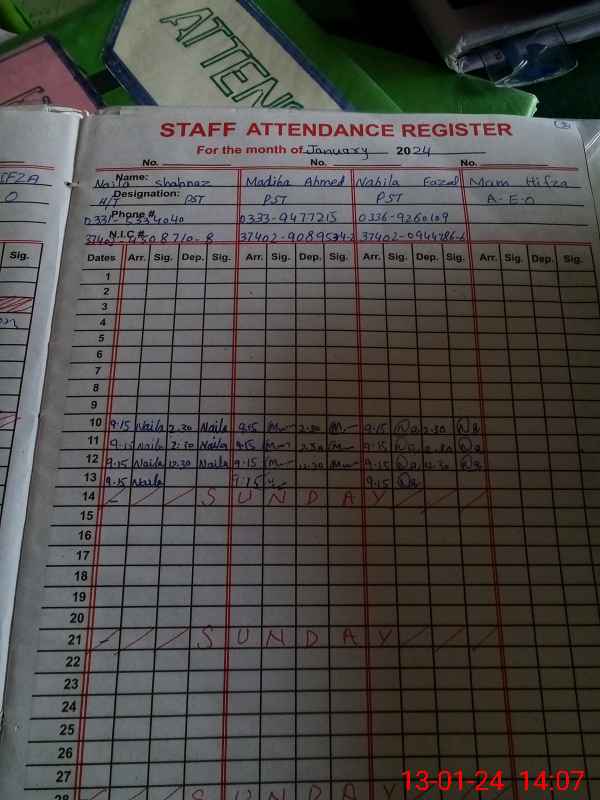 ATTEN
STAFF ATTENDANCE REGISTER
For the month of January 2024
No. No. No.
Name: Naila shahnaz Madiha Ahmed Nabila Fazal Mam Hifza
Designation: H/T PST PST PST A-E-O
Phone # 0333-9477215 0336-9260109
N.I.C #
Sig. Dates Arr. Sig. Dep. Sig. Arr. Sig. Dep. Sig. Arr. Sig. Dep. Sig. Arr. Sig. Dep. Sig.
1
2
3
4
5
6
7
8
9
10 9.15 Naila 2.30 Naila 9.15 2.30 9.15 2.30
11 9.15 Naila 2:30 Naila 9.15 2.30 9.15 2.30
12 9.15 Naila 12.30 Naila 9.15 12.30 9.15 12.30
13 9.15 Naila 9.15 9.15
14 SUNDAY
15
16
17
18
19
20
21 SUNDAY
22
23
24
25
26
27
28 SUNDAY
13-01-24 14:07